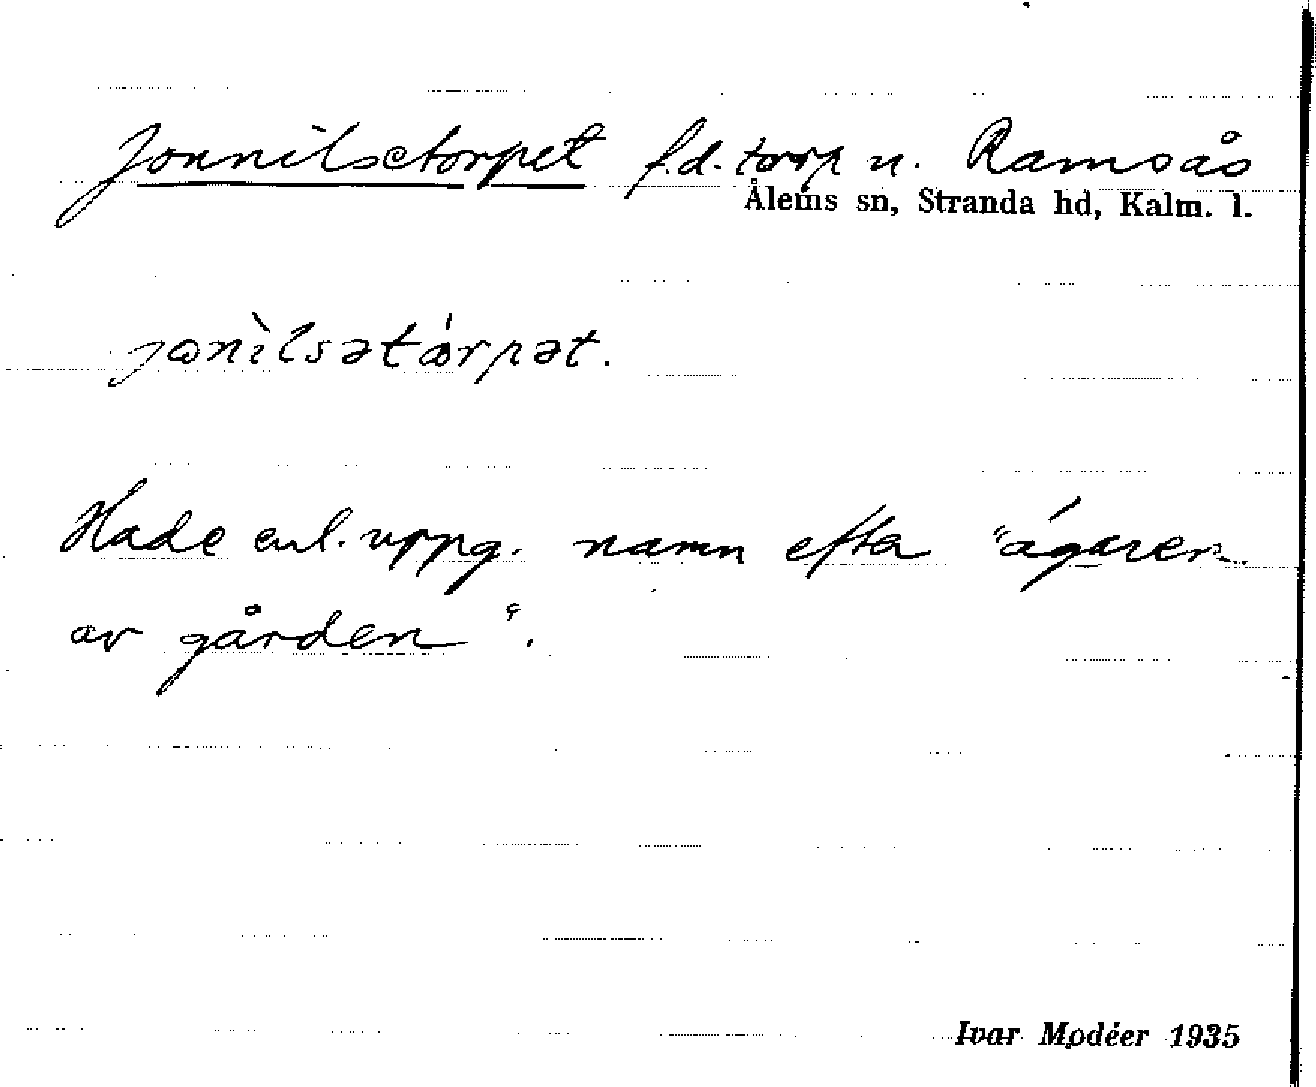 Jonnilsetorpet f.d. torp u. Ramsås
Ålems sn, Stranda hd, Kalm. l.
jonìlsətórpət.
Hade enl. uppg. namn efter "ägaren
av gården".
Ivar Modéer 1935